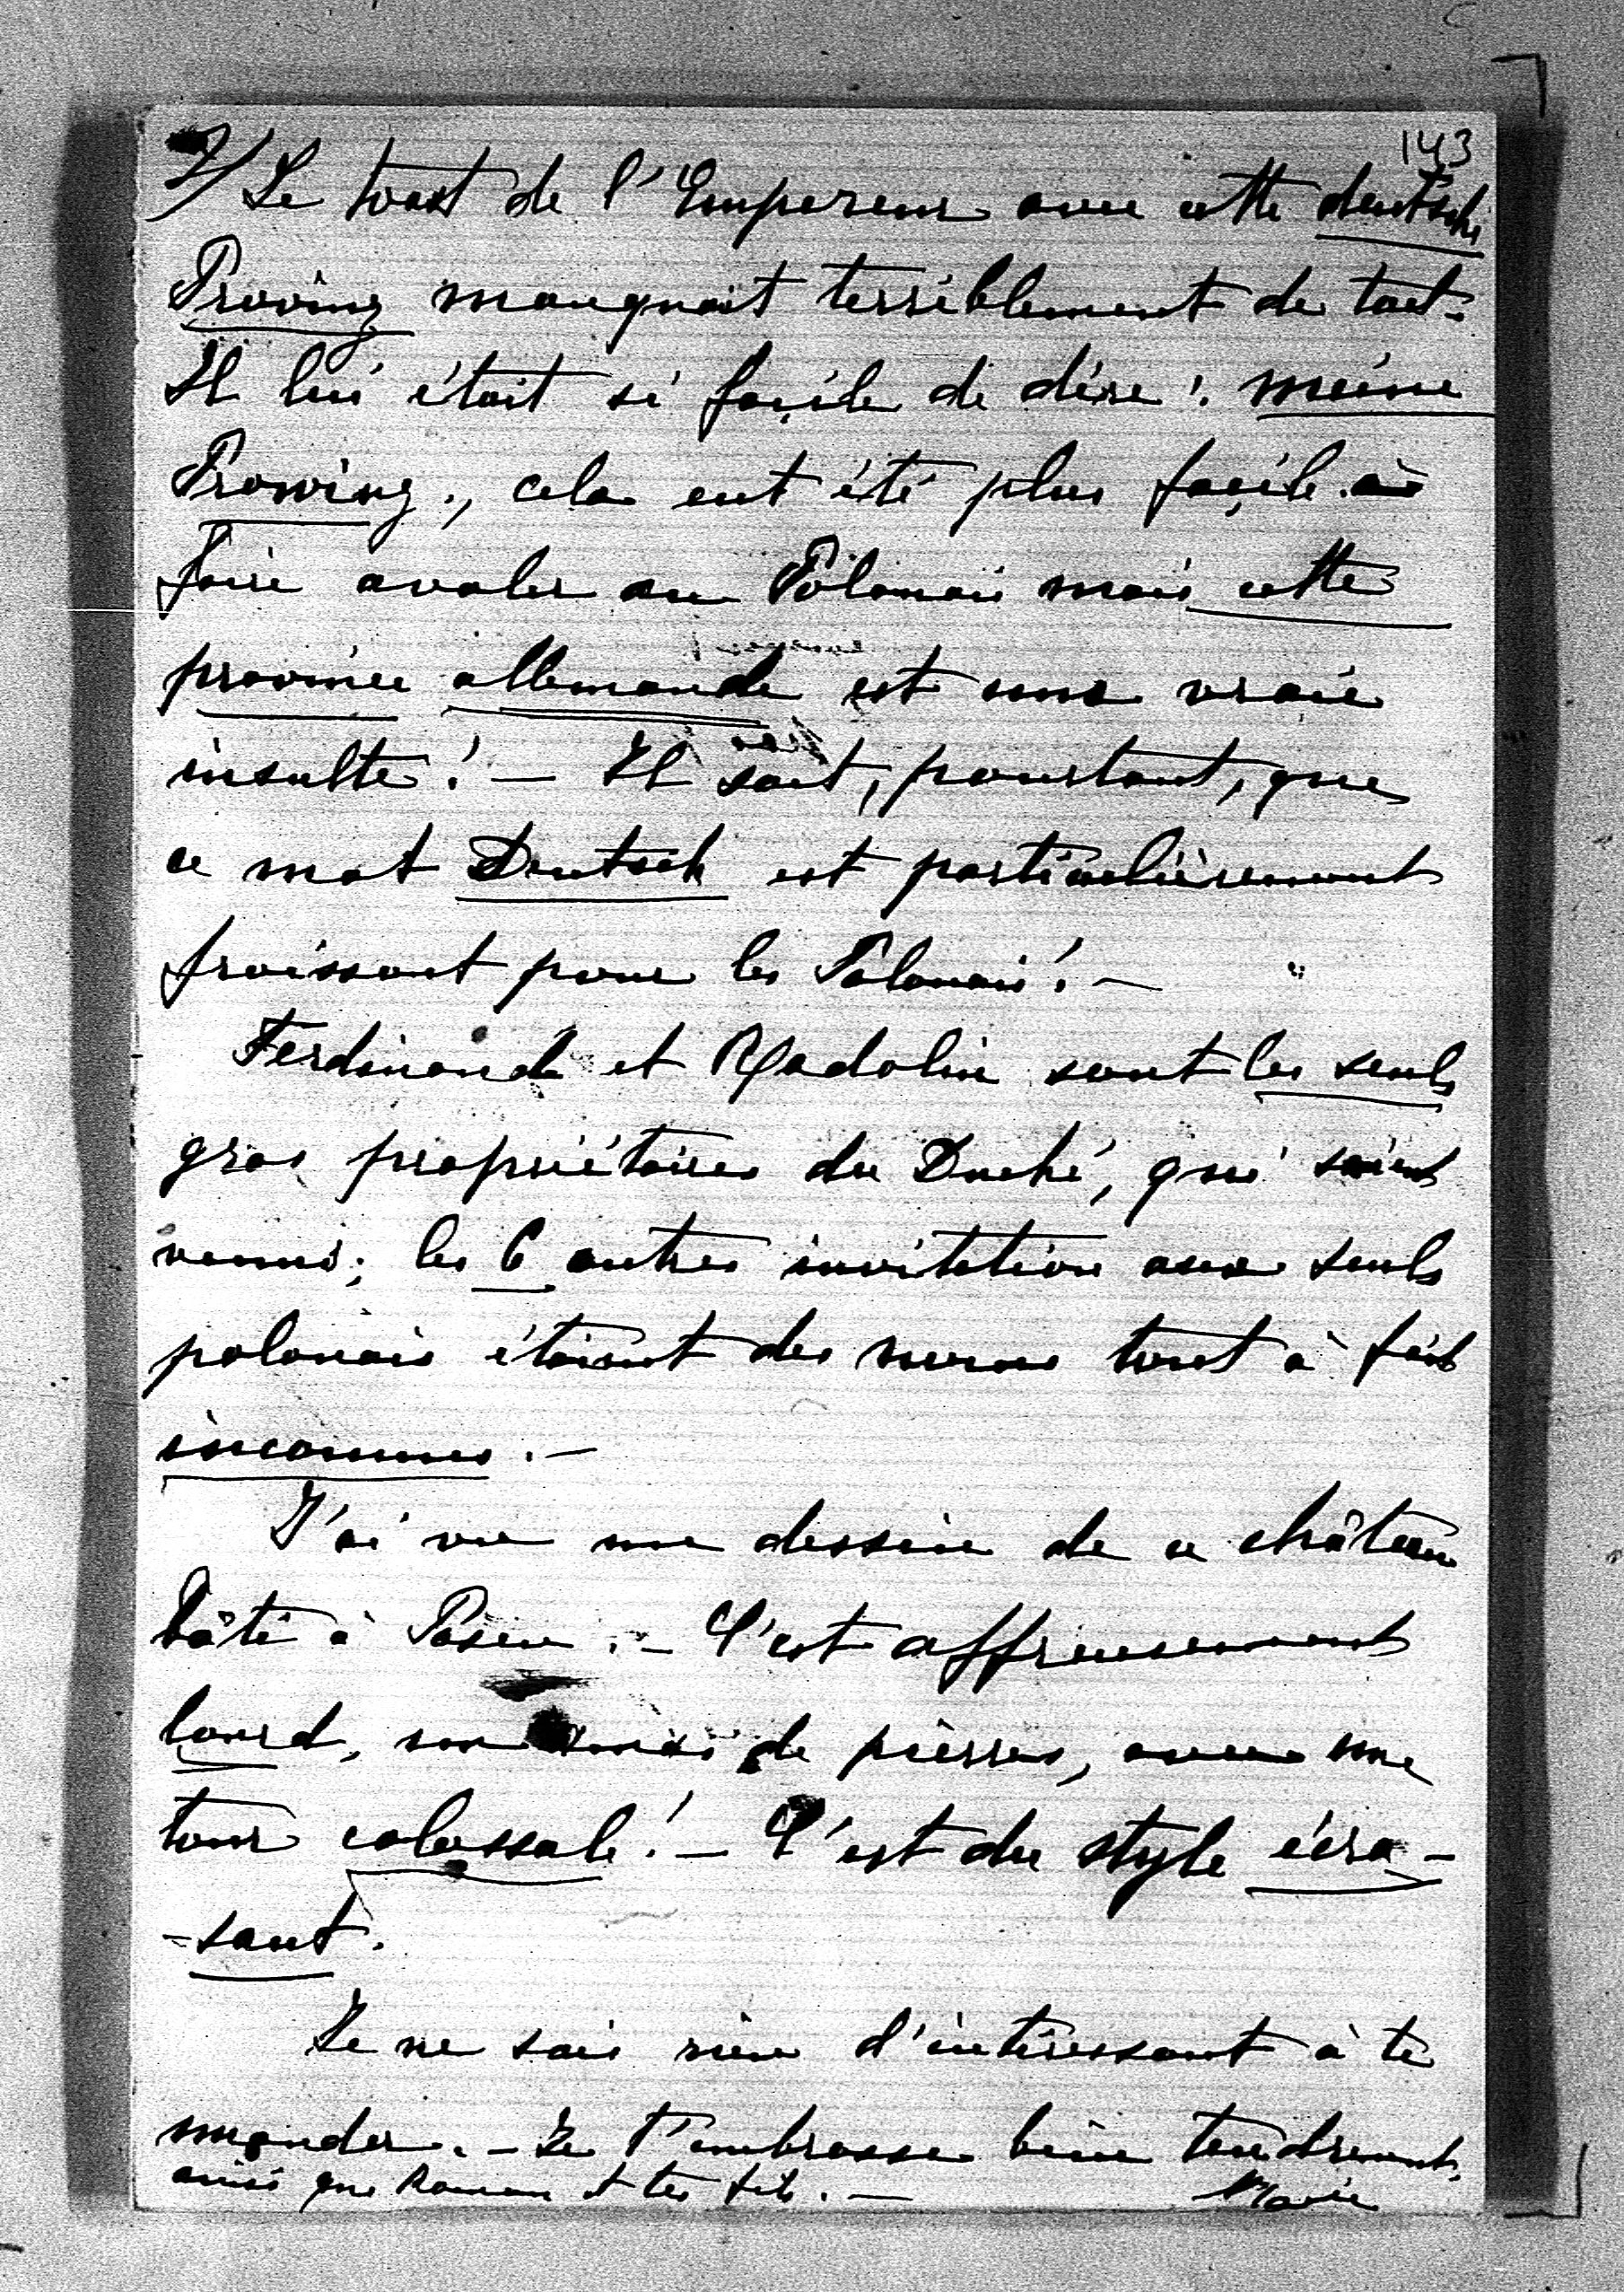 143
7/ Le toast de l'Empereur avec cette deutsche
Provinz manquait terriblement de tact.
Il lui était si façile de dire : meine
Provinz, cela eut été plus façile à
faire avaler au Polonais mais cette
province allemande est une vraie
insulte ! — Il sait, pourtant, que
ce mot Deutsch est particulièrement
froissant pour les Polonais ! —
Ferdinand et Radolin sont les seuls
gros propriétaires du Duché, qui soient
venus ; les 6 autres invitation aux seuls
polonais étaient des noms tout à fait
inconnus. —
J'ai vu un dessin de ce château
bâti à Posen. — C'est affreusement
lourd, un de pierres, avec une
tour colossale ! — C'est du style écra-
-sant.
Je ne sais rien d'intéressant à te
mander. — Je t'embrasse bien tendrement,
ainsi que Roman et tes fils. — Marie